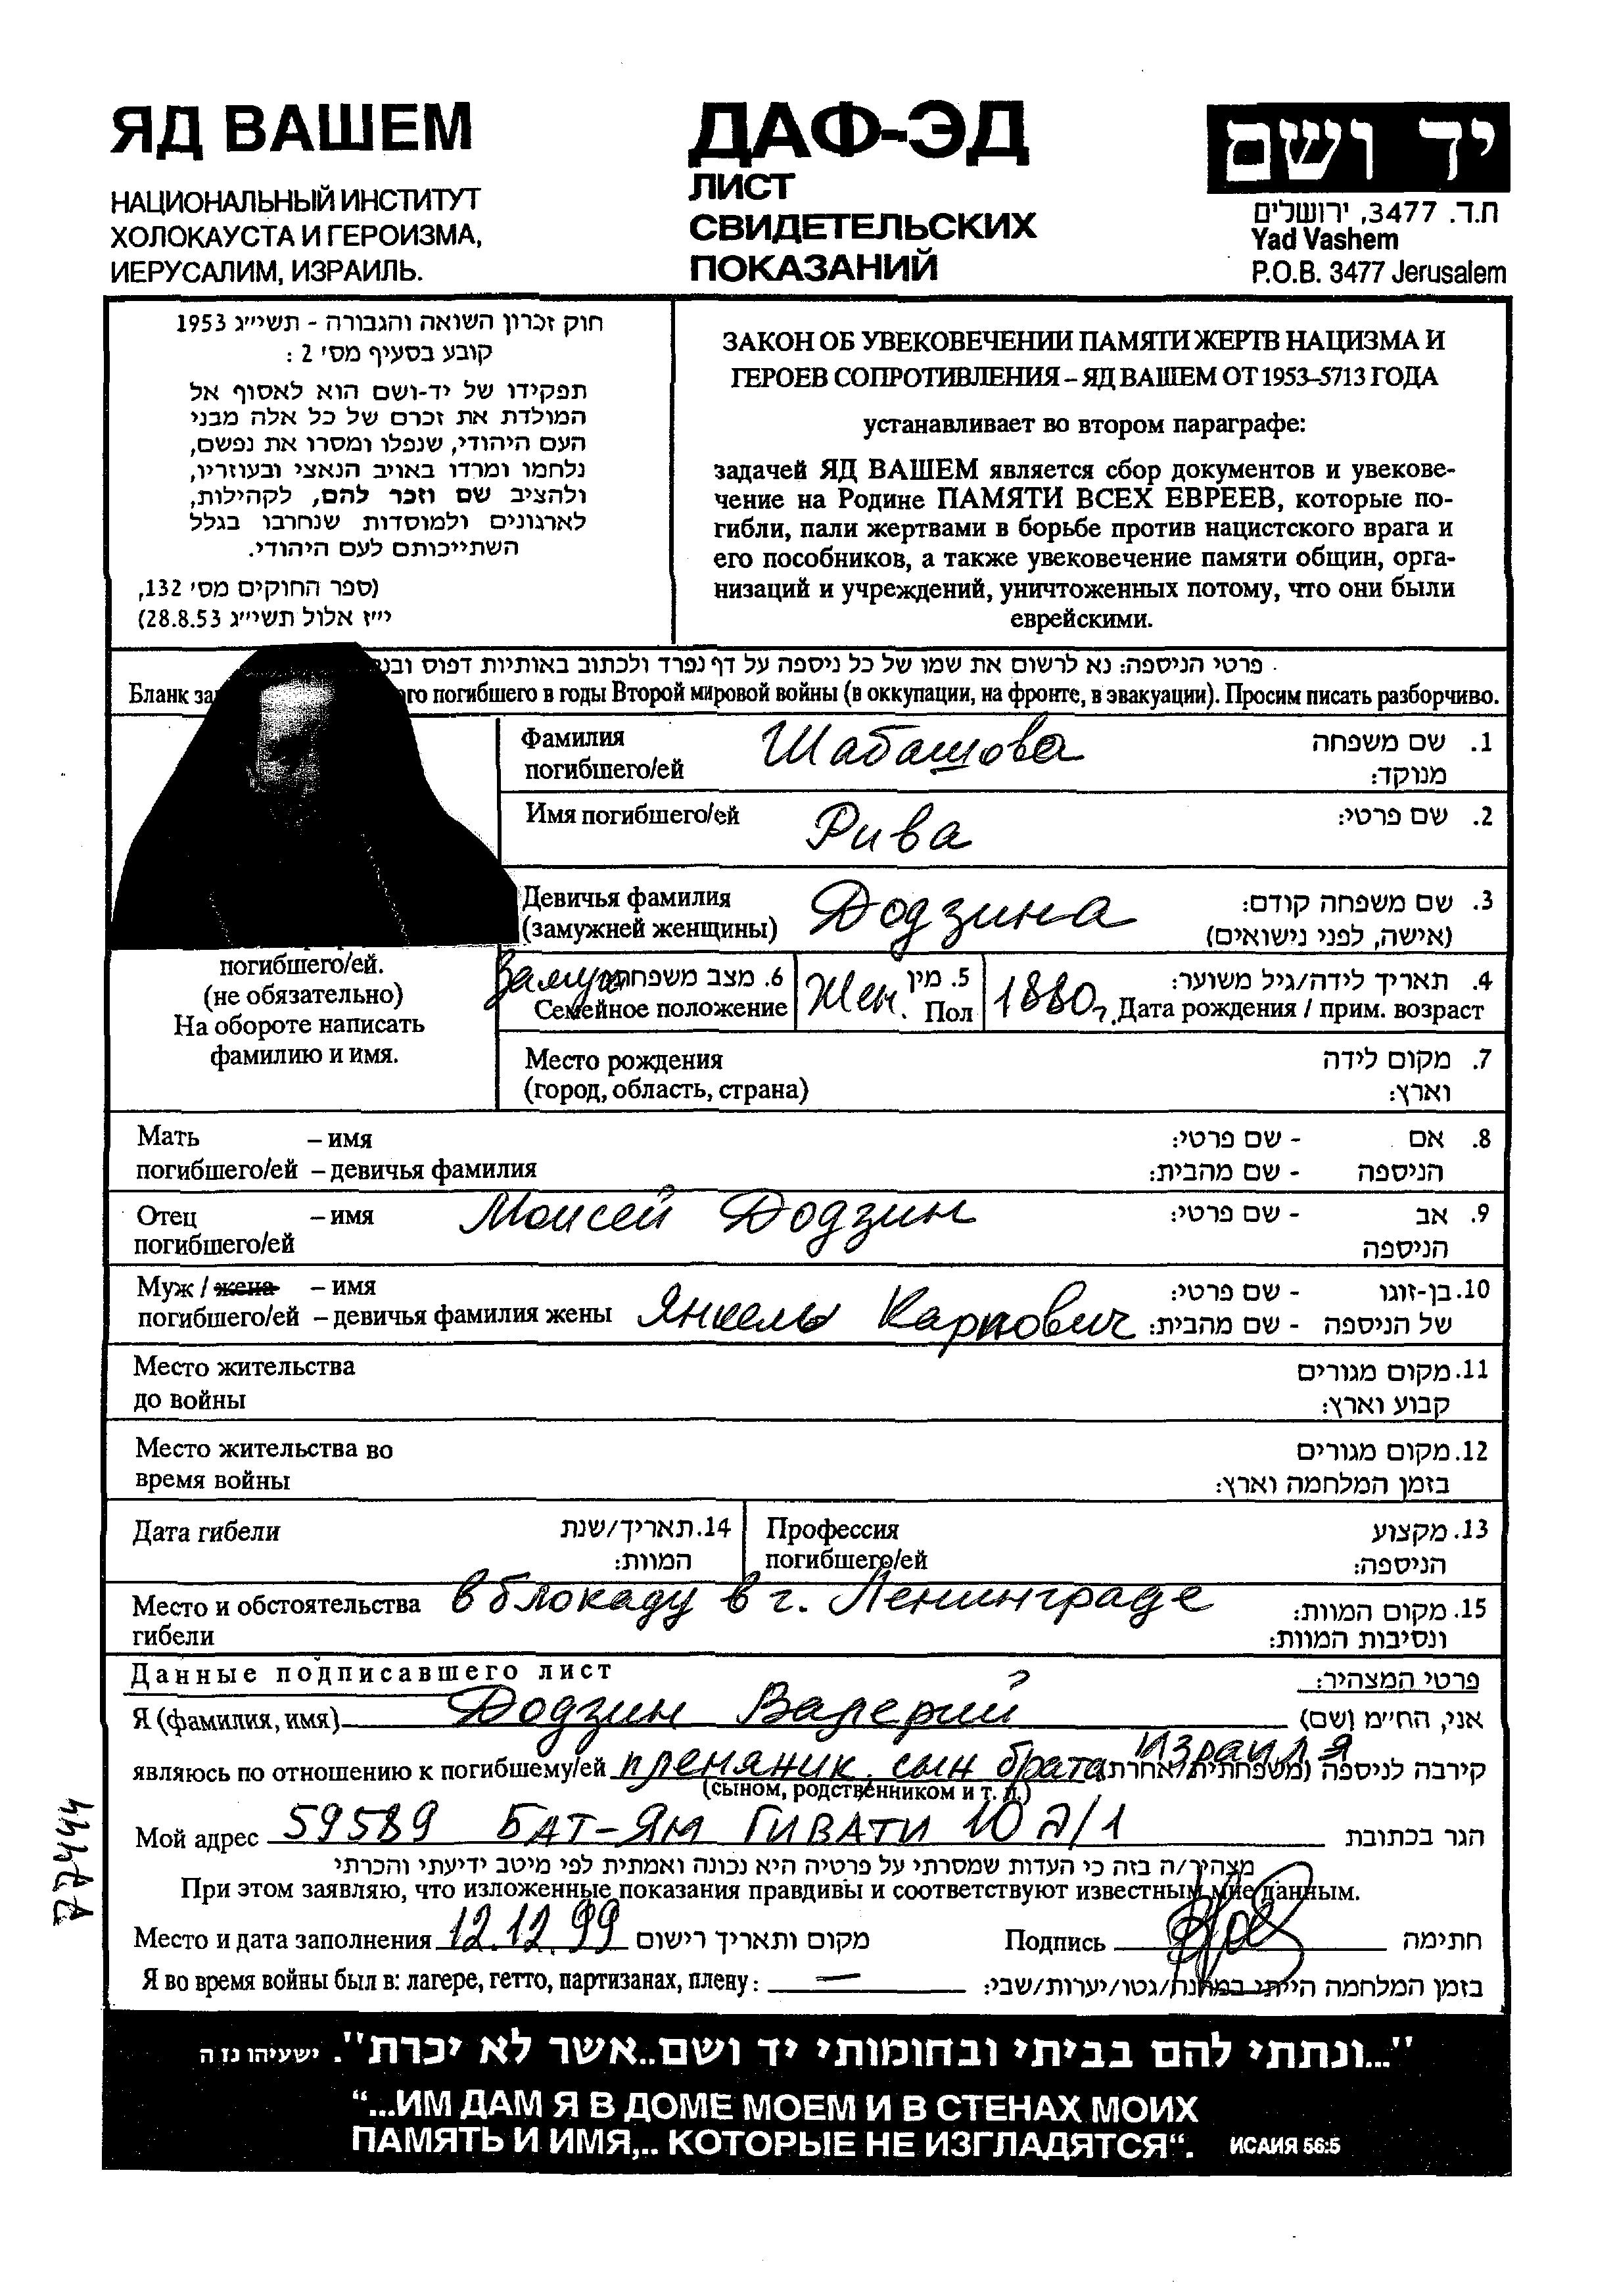 ЯД ВАШЕМ
НАЦИОНАЛЬНЫЙ ИНСТИТУТ
ХОЛОКАУСТА И ГЕРОИЗМА,
ИЕРУСАЛИМ, ИЗРАИЛЬ.
ДАФ-ЭД
ЛИСТ
СВИДЕТЕЛЬСКИХ
ПОКАЗАНИЙ
יד ושם
ת.ד. 3477, ירושלים
Yad Vashem
P.O.B. 3477 Jerusalem
חוק זכרון השואה והגבורה - תשי״ג 1953
קובע בסעיף מס׳ 2 :
תפקידו של יד-ושם הוא לאסוף אל
המולדת את זכרם של כל אלה מבני
העם היהודי, שנפלו ומסרו את נפשם,
נלחמו ומרדו באויב הנאצי ובעוזריו,
ולהציב שם וזכר להם, לקהילות,
לארגונים ולמוסדות שנחרבו בגלל
השתייכותם לעם היהודי.
(ספר החוקים מס׳ 132,
י״ז אלול תשי״ג 28.8.53)
ЗАКОН ОБ УВЕКОВЕЧЕНИИ ПАМЯТИ ЖЕРТВ НАЦИЗМА И
ГЕРОЕВ СОПРОТИВЛЕНИЯ – ЯД ВАШЕМ ОТ 1953–5713 ГОДА
устанавливает во втором параграфе:
задачей ЯД ВАШЕМ является сбор документов и увекове-
чение на Родине ПАМЯТИ ВСЕХ ЕВРЕЕВ, которые по-
гибли, пали жертвами в борьбе против нацистского врага и
его пособников, а также увековечение памяти общин, орга-
низаций и учреждений, уничтоженных потому, что они были
еврейскими.
פרטי הניספה: נא לרשום את שמו של כל ניספה על דף נפרד ולכתוב באותיות דפוס
Бланк погибшего в годы Второй мировой войны (в оккупации, на фронте, в эвакуации). Просим писать разборчиво.
Фамилия Шабашова 1. שם משפחה
погибшего/ей מנוקד:
Имя погибшего/ей Рива 2. שם פרטי:
Девичья фамилия Додзина 3. שם משפחה קודם:
(замужней женщины) (אישה, לפני נישואים)
погибшего/ей.
(не обязательно)
На обороте написать
фамилию и имя.
Замуж 6. מצב משפחתי Жен. 5. מין 1880 г. 4. תאריך לידה/גיל משוער:
Семейное положение Пол Дата рождения / прим. возраст
Место рождения 7. מקום לידה
(город, область, страна) וארץ:
Мать – имя 8. אם - שם פרטי:
погибшего/ей – девичья фамилия הניספה - שם מהבית:
Отец – имя Моисей Додзин 9. אב - שם פרטי:
погибшего/ей הניספה
Муж / жена – имя 10. בן-זוגו - שם פרטי:
погибшего/ей – девичья фамилия жены Янкель Карпович של הניספה - שם מהבית:
Место жительства 11. מקום מגורים
до войны קבוע וארץ:
Место жительства во 12. מקום מגורים
время войны בזמן המלחמה וארץ:
Дата гибели 14. תאריך/שנת Профессия 13. מקצוע
המוות: погибшего/ей הניספה:
Место и обстоятельства в блокаду в г. Ленинграде 15. מקום המוות:
гибели ונסיבות המוות:
Данные подписавшего лист פרטי המצהיר:
Я (фамилия, имя) Додзин Валерий אני, הח״מ (שם)
являюсь по отношению к погибшему/ей племяник. сын брата Израиля קירבה לניספה (משפחתית/אחרת)
(сыном, родственником и т. п.)
Мой адрес 59589 БАТ-ЯМ ГИВАТИ 10 א/1 הגר בכתובת
מצהיר/ה בזה כי העדות שמסרתי על פרטיה היא נכונה ואמתית לפי מיטב ידיעתי והכרתי
При этом заявляю, что изложенные показания правдивы и соответствуют известным мне данным.
Место и дата заполнения 12.12.99 מקום ותאריך רישום Подпись חתימה
Я во время войны был в: лагере, гетто, партизанах, плену: — בזמן המלחמה הייתי במחנה/גטו/יערות/שבי:
"...ונתתי להם בביתי ובחומותי יד ושם..אשר לא יכרת". ישעיהו נז ה
“...ИМ ДАМ Я В ДОМЕ МОЕМ И В СТЕНАХ МОИХ
ПАМЯТЬ И ИМЯ,.. КОТОРЫЕ НЕ ИЗГЛАДЯТСЯ“. ИСАИЯ 56:5